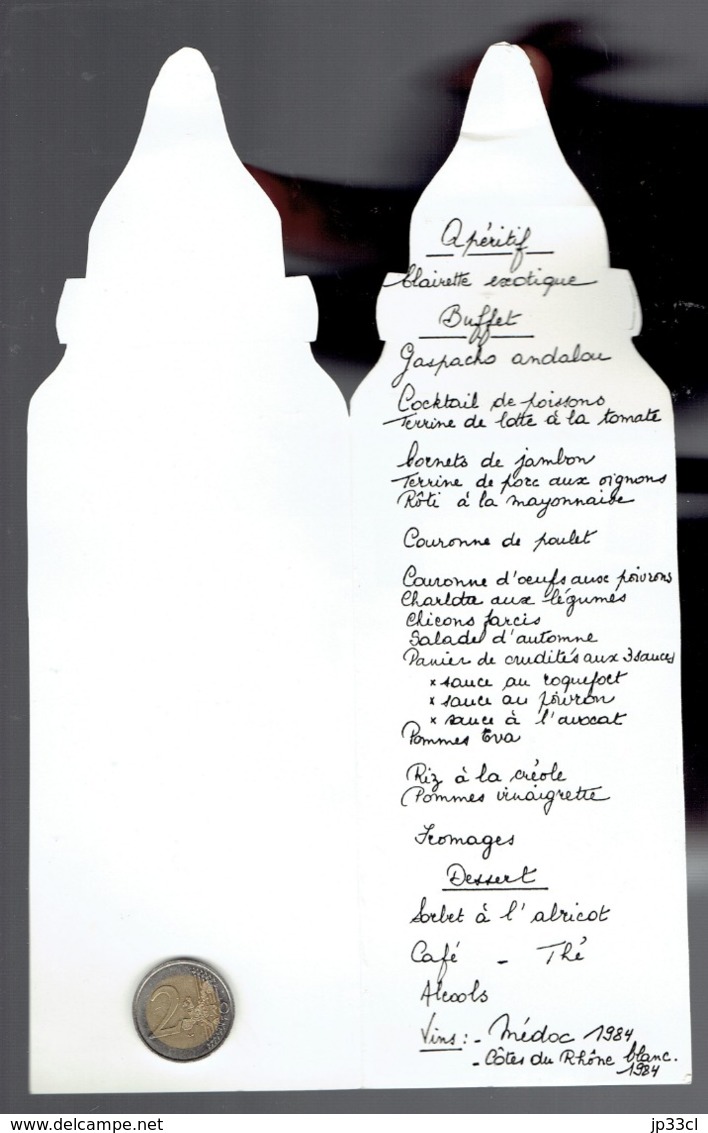 Apéritif
Clairette exotique
Buffet
Gaspacho andalou
Cocktail de poissons
Terrine de lotte à la tomate
Cornets de jambon
Terrine de porc aux oignons
Rôti à la mayonnaise
Couronne de poulet
Couronne d'oeufs aux poivrons
Charlota aux légumes
Chicons farcis
Salade d'automne
Panier de crudités aux 3 sauces
x sauce au roquefort
x sauce au poivron
x sauce à l'avocat
Pommes Eva
Riz à la créole
Pommes vinaigrette
Fromages
Dessert
Sorbet à l'abricot
Café - Thé
Alcools
Vins : - Médoc 1984
- Côtes du Rhône blanc. 1984
2
www.delcampe.net
jp33cl